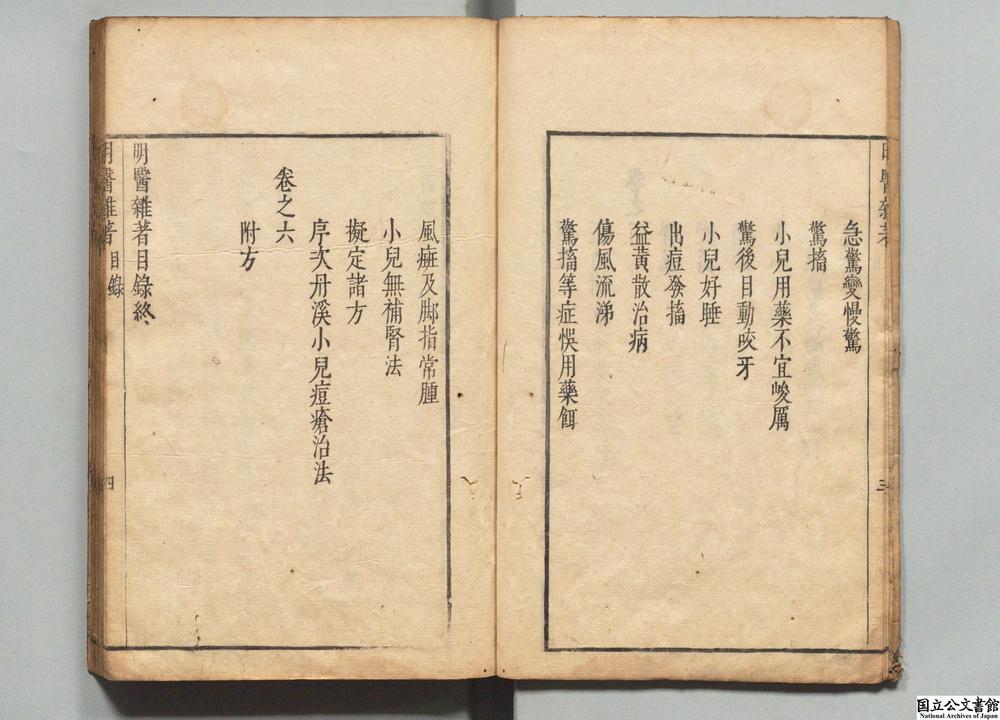 急驚變慢驚
驚搐
小兒用藥不宜峻厲
驚後目動咬牙
小兒好睡
出痘發搐
益黃散治病
傷風流涕
驚搐等症悞用藥餌
三
風痓及脚指常腫
小兒無補腎法
擬定諸方
序次丹溪小兒痘瘡治法
卷之六
附方
明醫雜著目錄終
明醫雜著 目錄
四
国立公文書館
National Archives of Japan